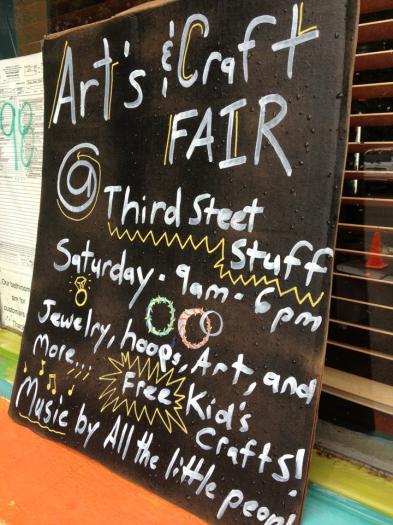 Art's & Craft
FAIR
@ Third Steet
Stuff
Saturday - 9am - 6pm
Jewelry, hoops, Art, and
more...
Free Kid's
Crafts!
Music by All the little
98
Our bathroom
are for
customers